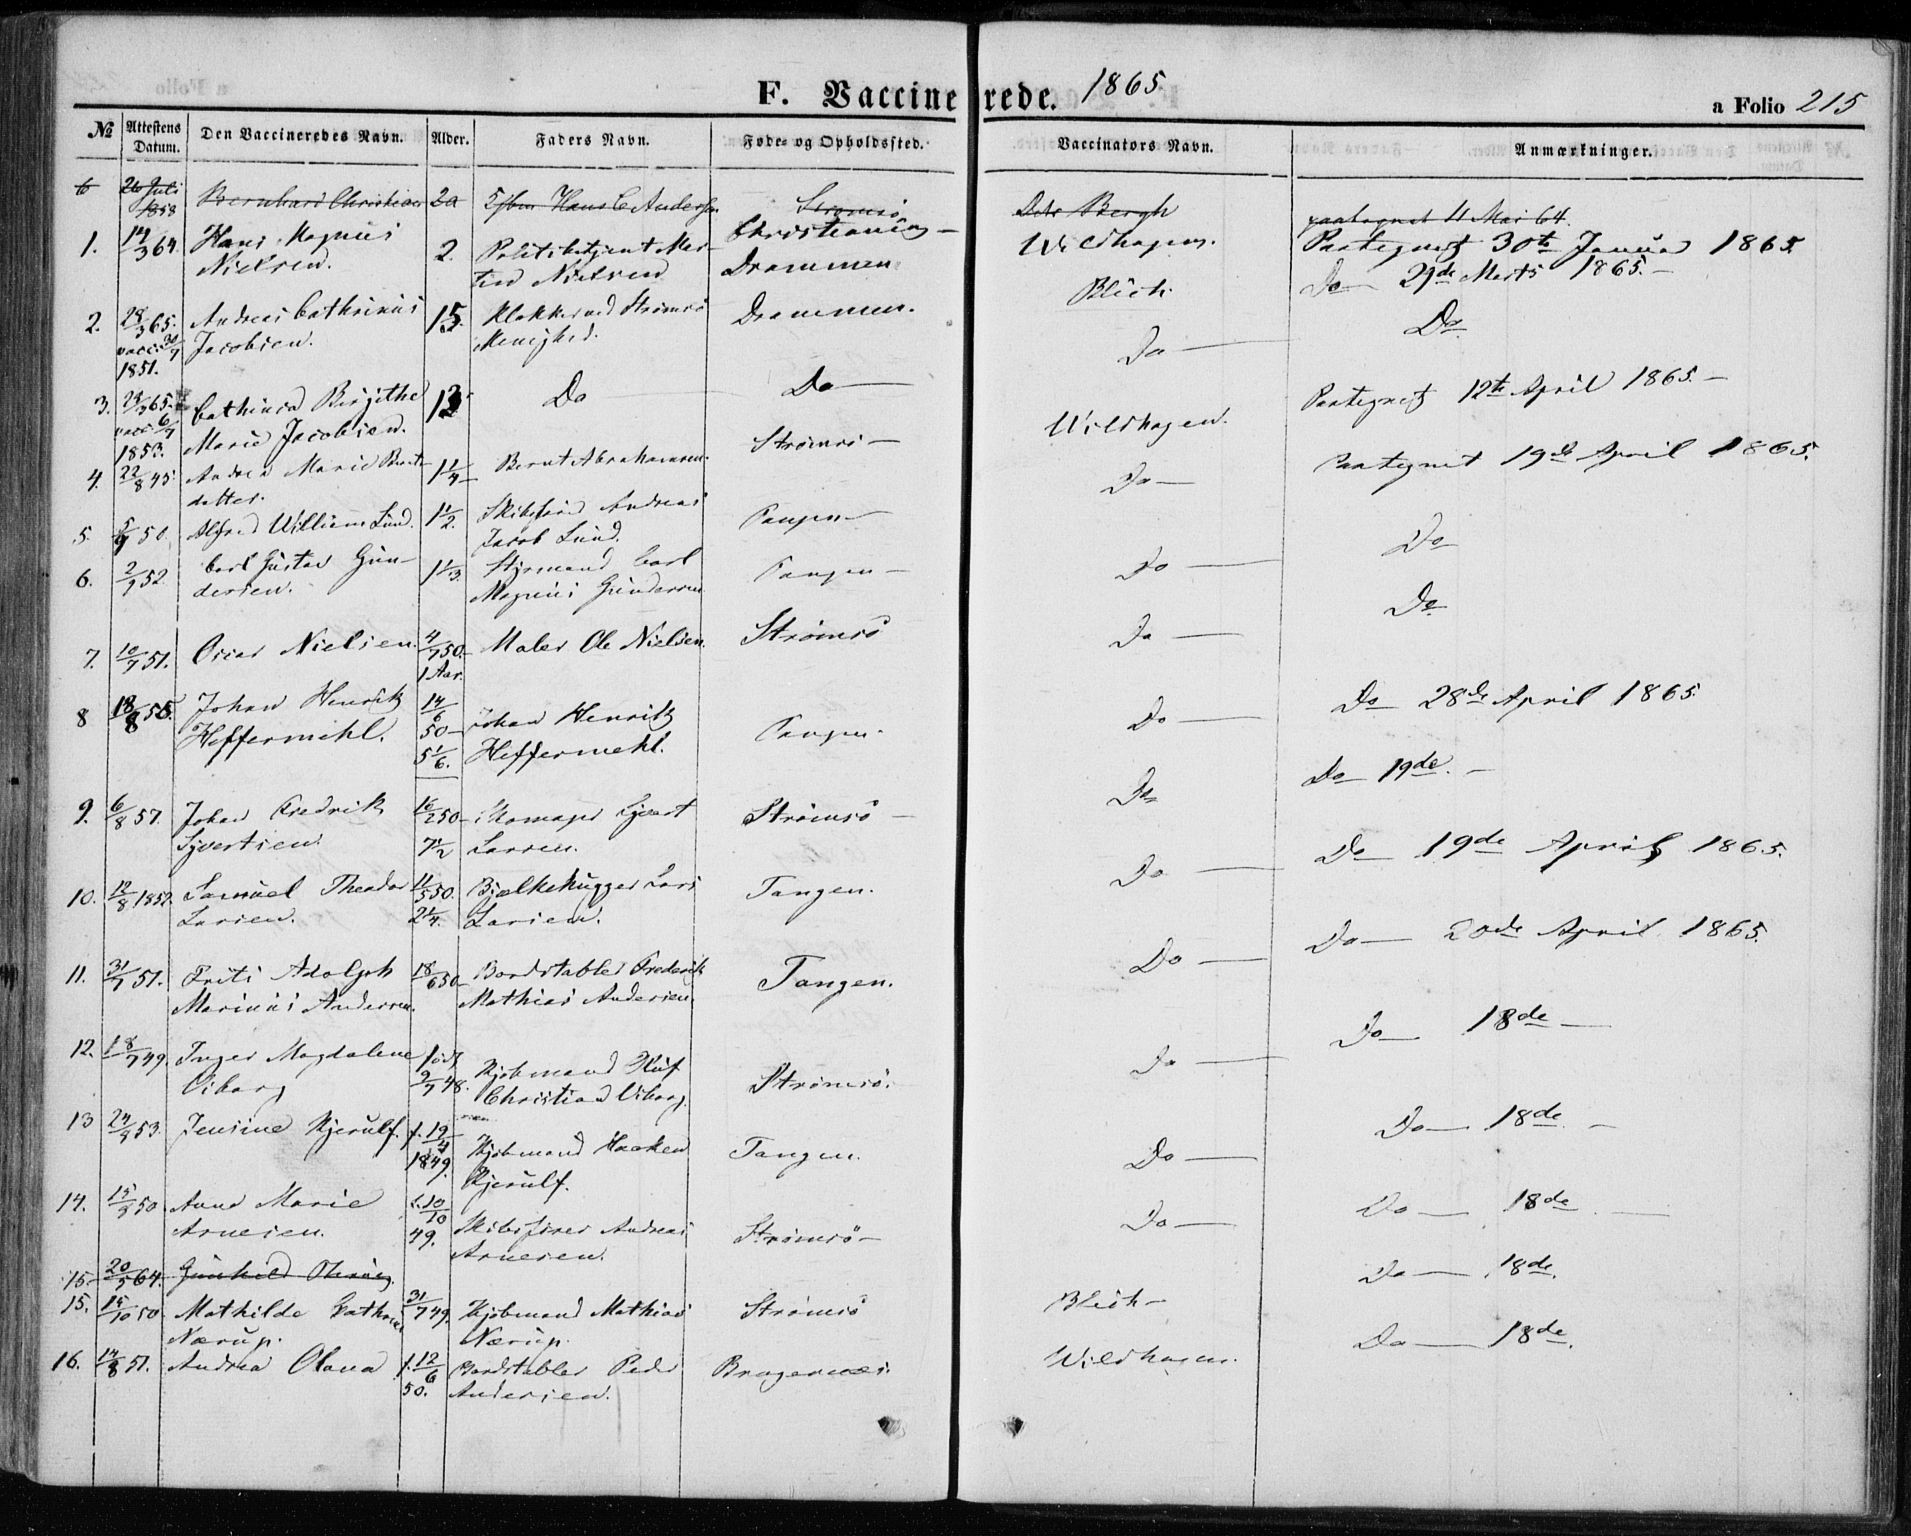 F. Vaccinerede. 1865
a Folio 215
№ Attestens Datum. Den Vaccineredes Navn. Alder. Faders Navn. Føde- og Opholdssted. Vaccinators Navn. Anmærkninger.
6 26 Juli 1858 Bernhard Christian 2a Hans C Anderssen Strømsø Do Bergh paategnet 11 Mai 64
1. 14/3 64. Hans Magnus 2. Politibetjent Mar- Christiania – Wildhagen. Paategnet 30te Januar 1865.
Nielsen. tin Nielsen Drammen
Blich. Do 29de Marts 1865. –
2. 28/3 65. Andreas Cathrinus 15. Klokker ved Strømsø Drammen. Do – Do
vacc. 30/7 1851. Jacobsen. Menighed.
3. 28/3 65. Cathinca Birgithe 13 Do Do – Wildhagen. Paategnet 12te April 1865. –
vacc. 6/7 1853. Marie Jacobsen.
4. 22/8 45 Andrea Marie Bernts- 1 1/4 Bernt Abrahamsen. Strømsø – Do – Paategnet 19de April 1865.
datter.
5. 50. Alfred William Lund. 1 1/2. Skibsfører Andreas Tangen – Do – Do
Jacob Lund.
6. 2/9 52 Carl Gustav Gun- 1 1/3. Styrmand Carl Tangen – Do – Do
dersen. Magnus Gundersen
7. 10/7 51. Oscar Nielsen. 4/7 50. – Maler Ole Nielsen. Strømsø Do – Do 28de April 1865
1 Aar.
8 18/8 55. Johan Henrik 14/6 50 – Johan Henrik Tangen. Do Do 19de. –
Heffermehl. 5 1/6. Heffermehl.
9. 6/8 57. Johan Fredrik 16/2 50 – Skomager Syvert Strømsø – Do – Do 19de April 1865.
Syvertsen. 7 1/2 Larsen.
10. 12/8 1852. Samuel Theodor 11/5 50. Bjælkehugger Lars Tangen. Do – Do 20de April 1865.
Larsen. 2 1/4. Larsen.
11. 31/7 51. Frits Adolph 18/6 50 – Bordstabler Frederik Tangen. Do – Do 18de –
Marinus Andersen. Mathias Andersen.
12. 18/7 49. Inger Magdalene født Kjøbmand Strømsø. Do – Do 18de. –
Viborg 9/7 48. Christian Viborg.
13 24/9 53. Jensine Kjerulf. f. 19/4 Kjøbmand Haaken Tangen. Do – Do 18de
1849. Kjerulf.
14. 15/8 50 Anna Marie f. 10/10 Skibsfører Andreas Strømsø – Do – 18de.
Arnesen. 49. Arnesen.
15 20/5 64. Gunhild
15. 15/10 50. Mathilde Cathrine 31/7 49. Kjøbmand Mathias Strømsø Blich – Do – 18de.
Nærup. Nærup.
16. 14/8 51. Andrea Olava f. 12/6 Bordstabler Peder Bragernæs. Wildhagen.
50. Andersen.